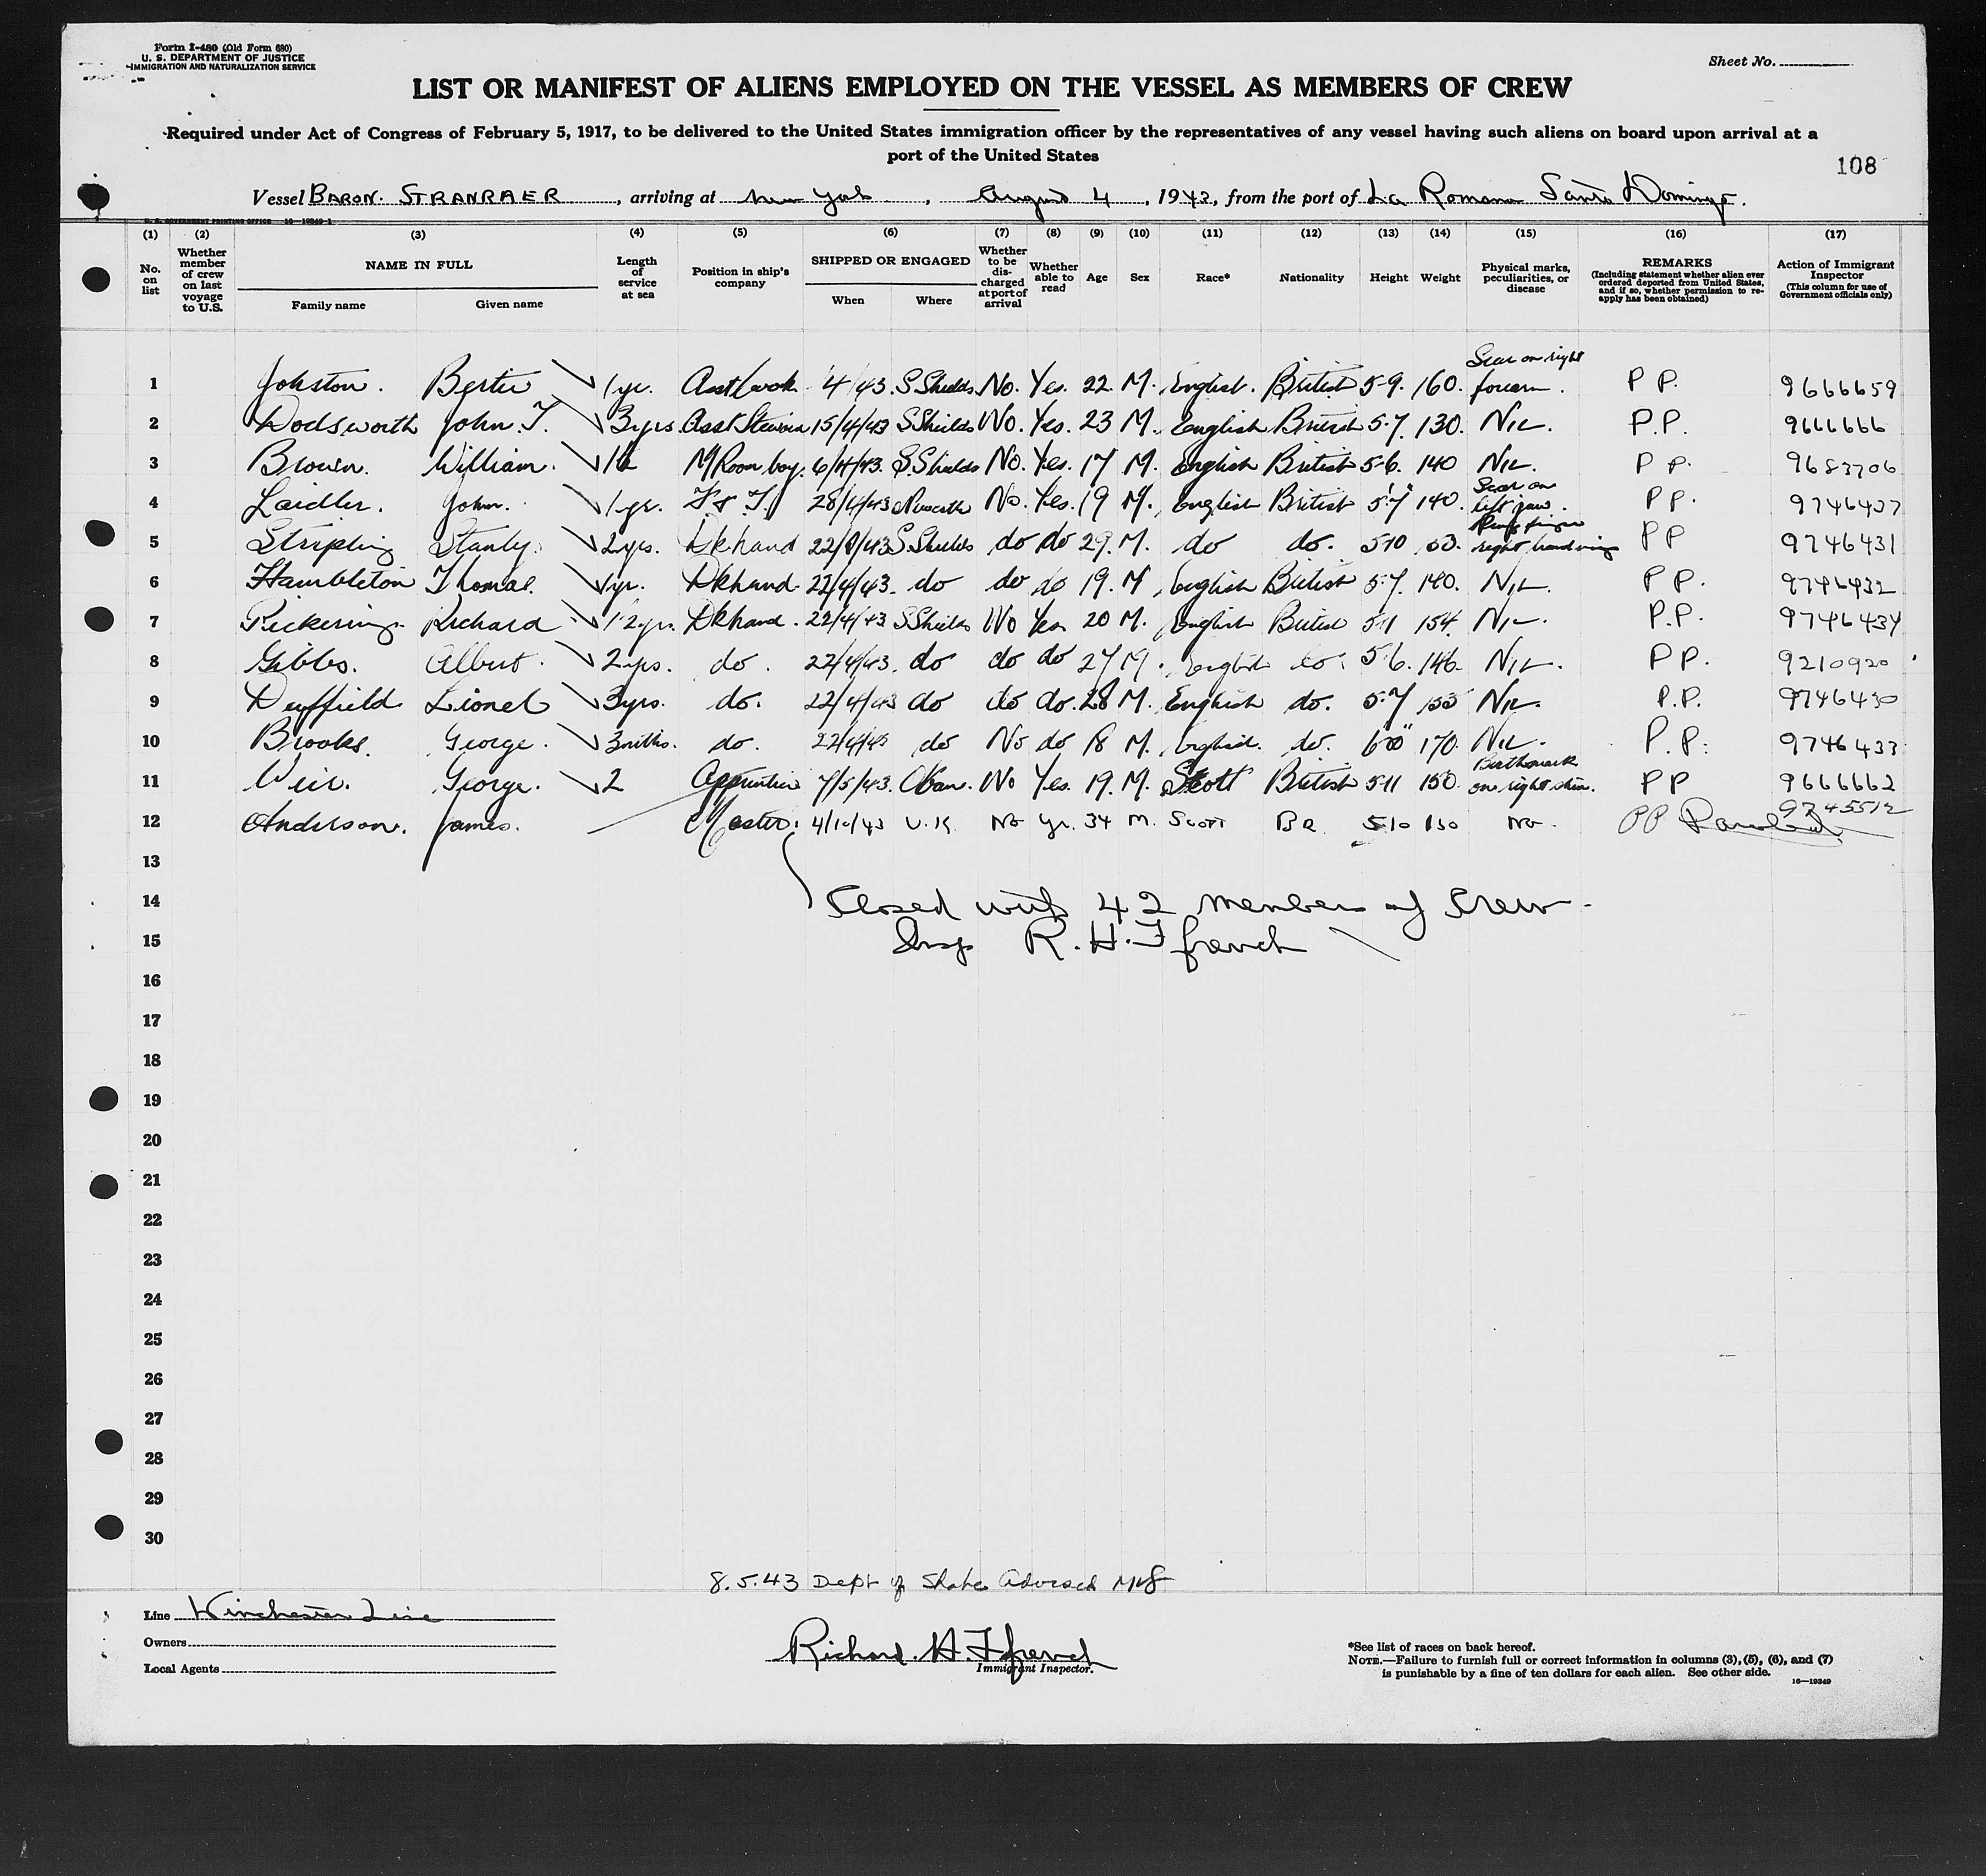 Form I-480 (Old Form 680)
U. S. DEPARTMENT OF JUSTICE
IMMIGRATION AND NATURALIZATION SERVICE
Sheet No.
LIST OR MANIFEST OF ALIENS EMPLOYED ON THE VESSEL AS MEMBERS OF CREW
Required under Act of Congress of February 5, 1917, to be delivered to the United States immigration officer by the representatives of any vessel having such aliens on board upon arrival at a
port of the United States
108
Vessel BARON. STRANRAER, arriving at New York, August 4, 1943, from the port of La Romana Santo Domingo.
U. S. GOVERNMENT PRINTING OFFICE 16-19349-1
(1) (2) (3) (4) (5) (6) (7) (8) (9) (10) (11) (12) (13) (14) (15) (16) (17)
No. on list
Whether member of crew on last voyage to U.S.
NAME IN FULL
Family name Given name
Length of service at sea
Position in ship's company
SHIPPED OR ENGAGED
When Where
Whether to be discharged at port of arrival
Whether able to read
Age
Sex
Race*
Nationality
Height
Weight
Physical marks, peculiarities, or disease
REMARKS
(Including statement whether alien ever ordered deported from United States, and if so, whether permission to reapply has been obtained)
Action of Immigrant Inspector
(This column for use of Government officials only)
1 Johston. Bertie 1yr. Asst Cook 4/43. S Shields No. Yes. 22 M. English. British 5-9. 160. Scar on right forearm. P P. 9666659
2 Dodsworth John. T. 3yrs. Asst Steward 15/4/43 S Shields No. Yes. 23 M. English British 5-7. 130. NIL. P.P. 9666666
3 Brown. William. M Room boy. 6/4/43. S. Shields No. Yes. 17 M. English British 5-6. 140 NIL. P P. 9683706
4 Laidler. John. 1yr. F & T. 28/4/43 No. Yes. 19 M. English British 5-7 140. Scar on left jaw. P P. 9746437
5 Stripling Stanly. 2yrs. Dkhand 22/4/43 S. Shields do do 29. M. do do. 5-10 Ring finger right hand P P 9746431
6 Hambleton Thomas. 1yr. Dkhand. 22/4/43. do do do 19. M English British 5-7. 140. NIL. P P. 9746432
7 Pickering. Richard 1 1/2yrs. Dkhand. 22/4/43 S Shields No Yes 20 M. English British 5-11 154. NIL. P.P. 9746434
8 Gibbs. Albert. 2yrs. do. 22/4/43. do do do 27 M. English do. 5-6. 146. NIL. P P. 9210920
9 Duffield Lionel 3yrs. do. 22/4/43 do do do. 28 M. English do. 5-7 155 NIL. P.P. 9746430
10 Brooks. George. 3mths. do. 22/4/43 do No do 18 M. English. do. 6-00" 170. NIL. P. P. 9746433
11 Weir. George. 2 Apprentice 7/5/43. Oban. No Yes. 19. M. Scott British 5-11 150. Birthmark on right shin. P P 9666662
12 Anderson. James. Master. 4/10/43 U.K. No Yr. 34 M. SCOTT BR 5-10 150 No. PP 9745512
13
14 Closed with 42 members of Crew.
15 Insp R. H. Ffrench
16
17
18
19
20
21
22
23
24
25
26
27
28
29
30
8.5.43 Dept of State Advised
Line Winchester Line
Owners
Local Agents
Richard. H. Ffrench
Immigrant Inspector.
*See list of races on back hereof.
NOTE.—Failure to furnish full or correct information in columns (3), (5), (6), and (7)
is punishable by a fine of ten dollars for each alien. See other side.
16—19349